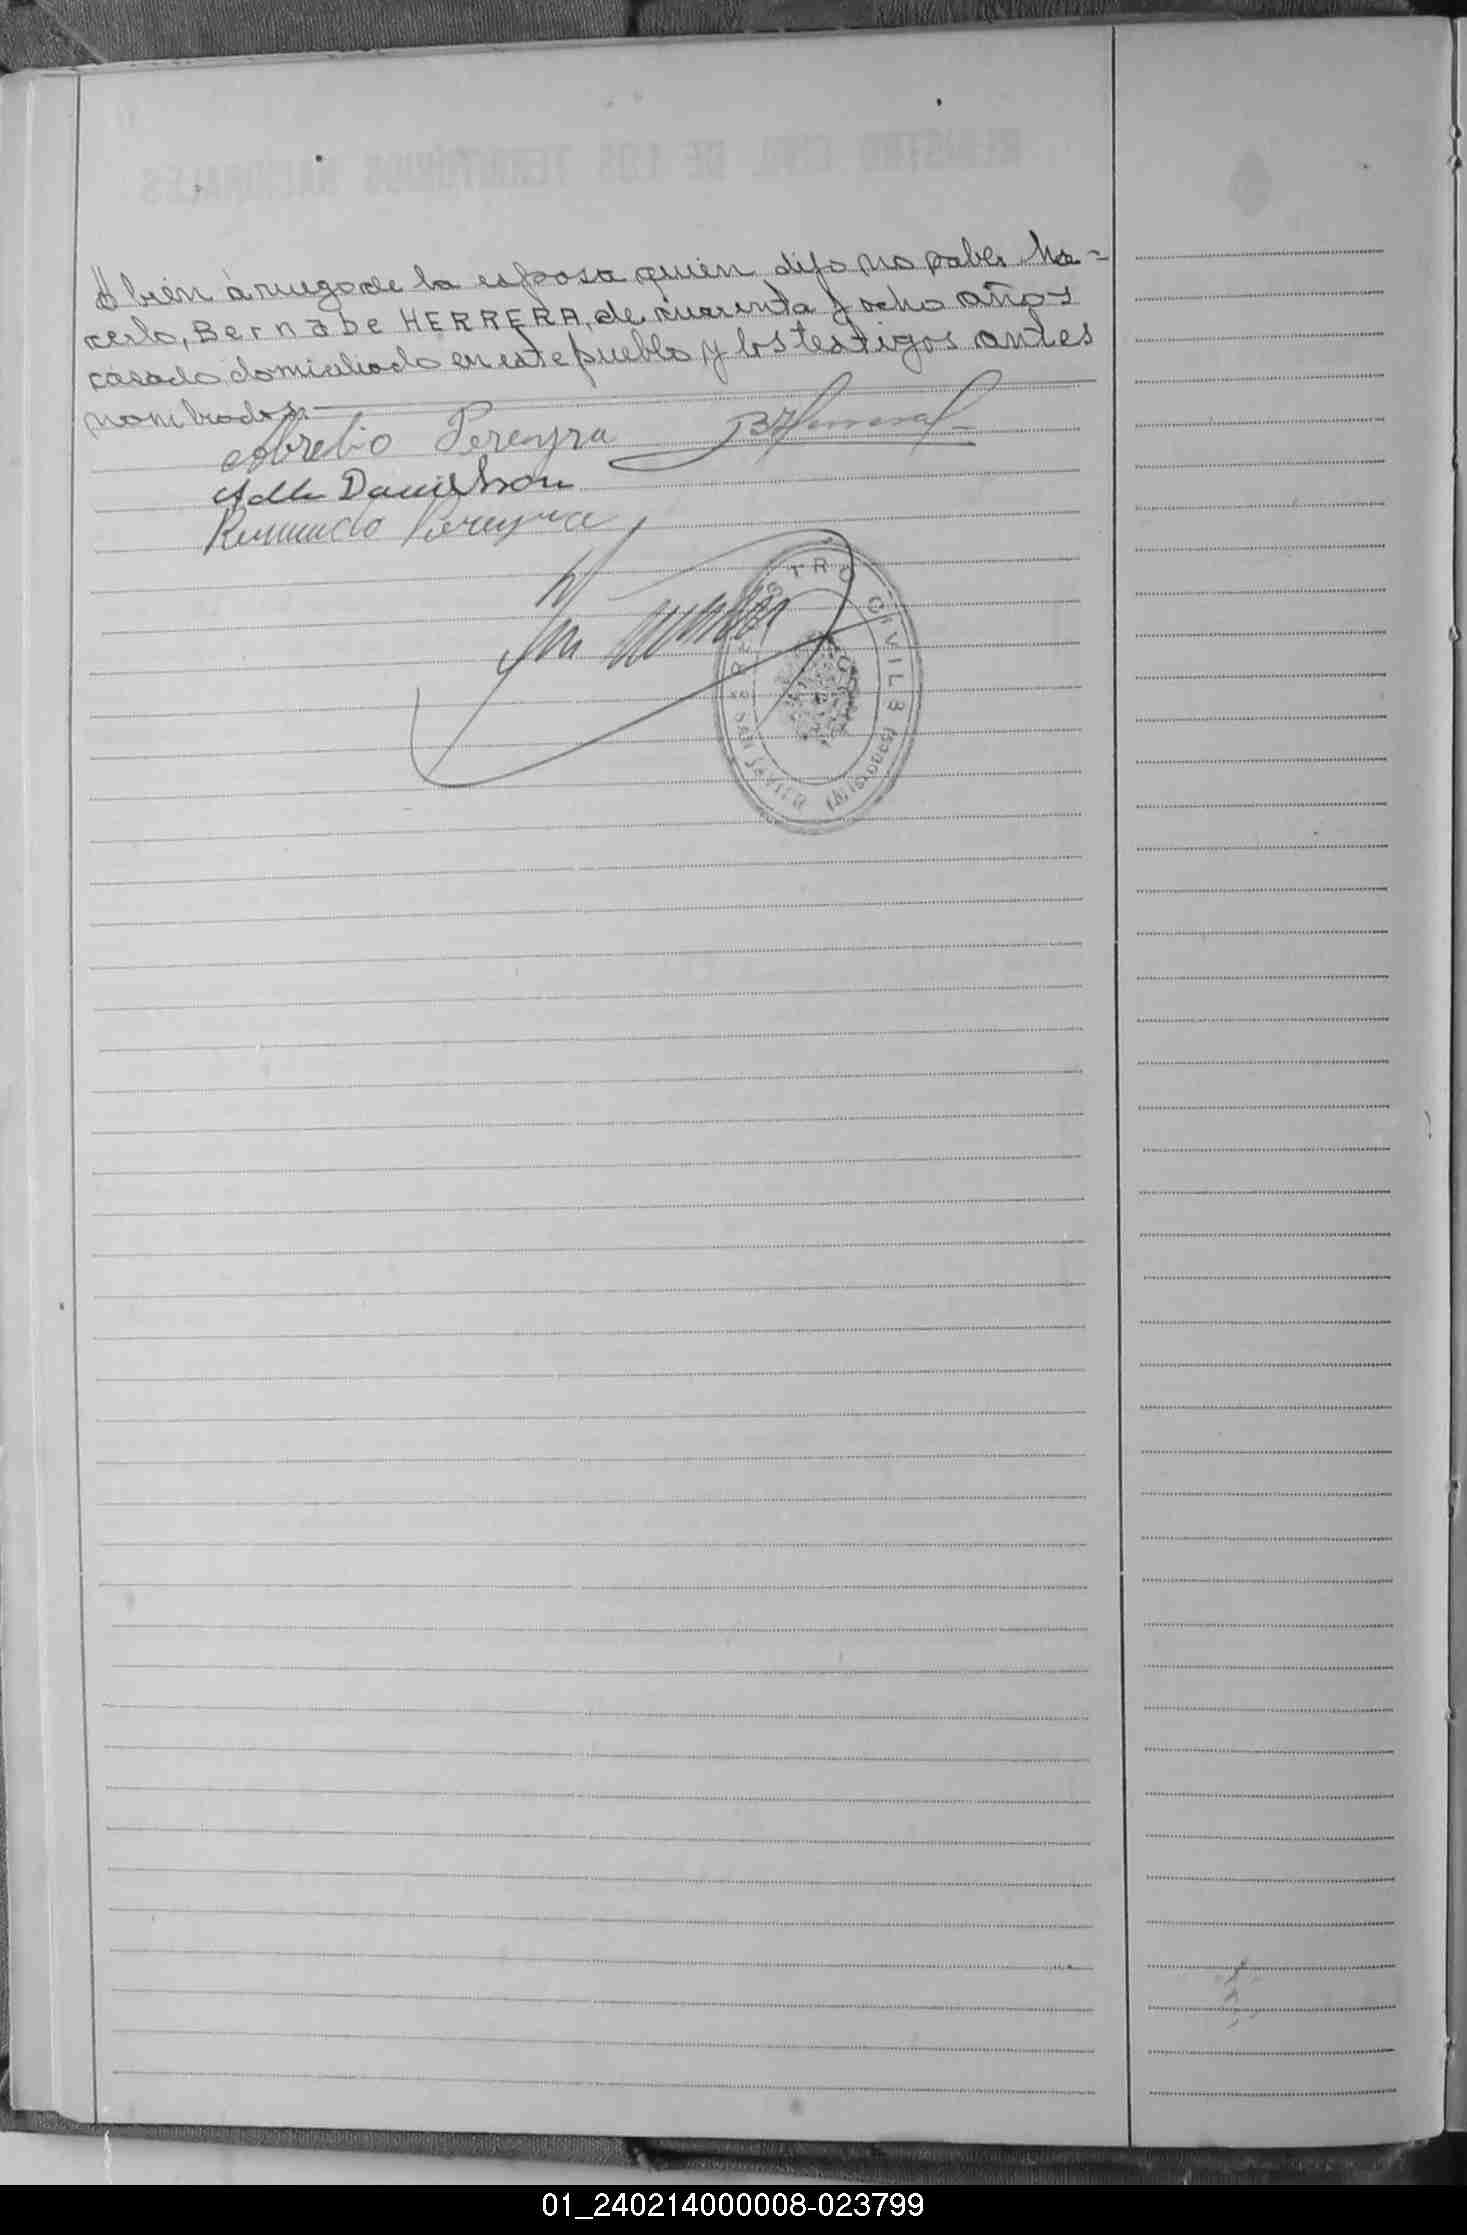 bién á ruego de la esposa quien dijo no saber ha=
cerlo, Bernabe HERRERA, de cuarenta y ocho años
casado domiciliado en este pueblo y los testigos antes
nombrados.
Pereyra B Herrera
Danielsson
Pereyra
REGISTRO CIVIL
SAN JAVIER (Misiones)
REGISTRO CIVIL DE LOS TERRITORIOS NACIONALES
01_240214000008-023799